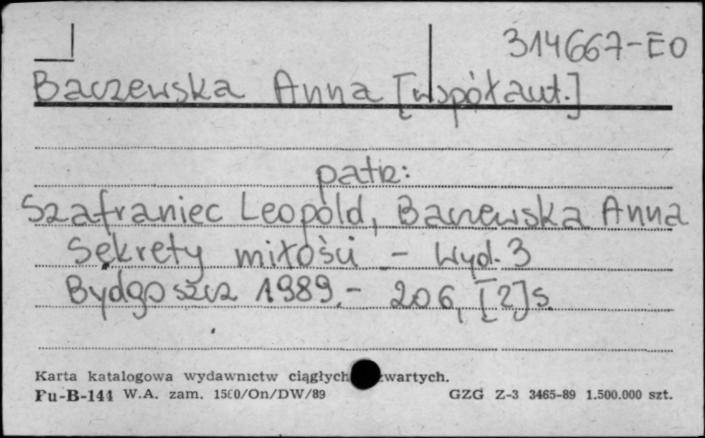 314667-EO
Baczewska Anna [współaut.]
patrz:
Szafraniec Leopold, Baczewska Anna
Sekrety miłości - Wyd. 3
Bydgoszcz 1989.- 206, [2]s.
Karta katalogowa wydawnictw ciągłych wartych.
Pu-B-144 W.A. zam. 1500/On/DW/89 GZG Z-3 3465-89 1.500.000 szt.